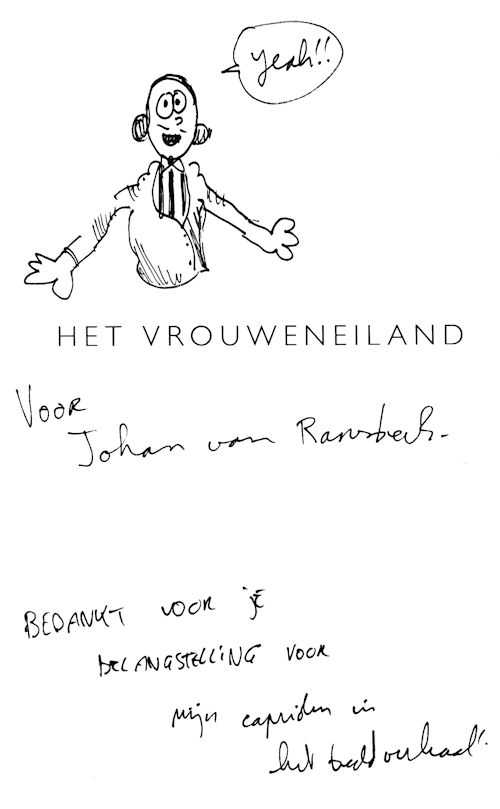 Yeah!!
HET VROUWENEILAND
VOOR
Johan van Ransbeck.
BEDANKT VOOR JE
BELANGSTELLING VOOR
mijn capriolen in
het beeldverhaal!